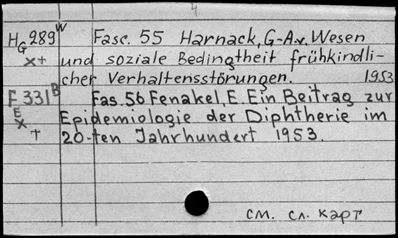 4
HG 289 W Fasc. 55 Harnack, G-A.v. Wesen
x+ und soziale Bedingtheit frühkindli-
cher Verhaltensstörungen. 1953
F 331 B Fas. 56 Fenakel, E. Ein Beitrag zur
E
x Epidemiologie der Diphtherie im
+ 20-ten Jahrhundert 1953.
см. сл. карт